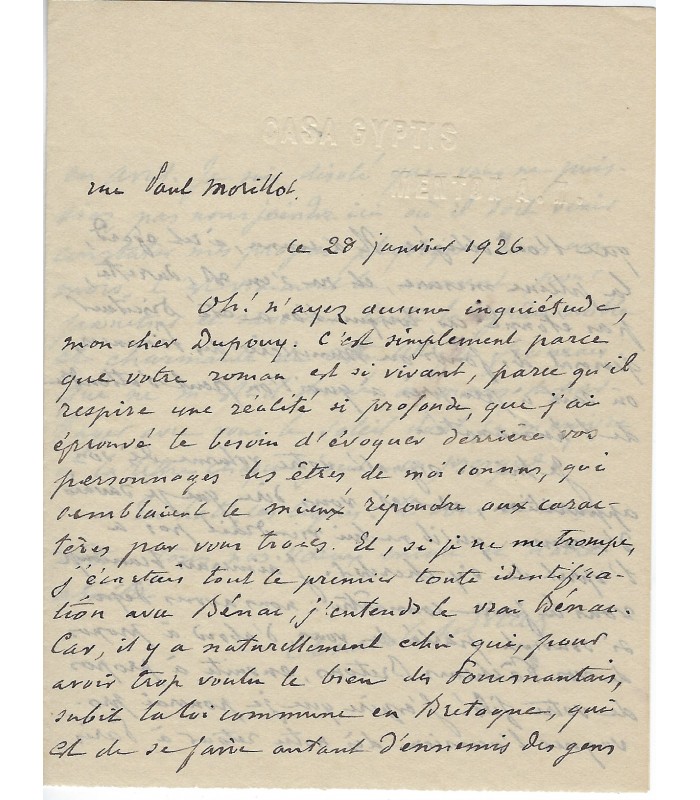 CASA GYPTIS
MENTON A. M.
rue Paul Morillot.
le 28 janvier 1926
Oh! n'ayez aucune inquiétude,
mon cher Dupouy. C'est simplement parce
que votre roman est si vivant, parce qu'il
respire une réalité si profonde, que j'ai
éprouvé le besoin d'évoquer derrière vos
personnages les êtres de moi connus, qui
semblaient le mieux répondre aux carac-
tères par vous tracés. Et, si je ne me trompe,
j'écartais tout le premier toute identifica-
tion avec Bénac, j'entends le vrai Bénac.
Car, il y a naturellement celui qui, pour
avoir trop voulu le bien du Fouesnantais,
subit la loi commune en Bretagne, qui
est de se faire autant d'ennemis des gens